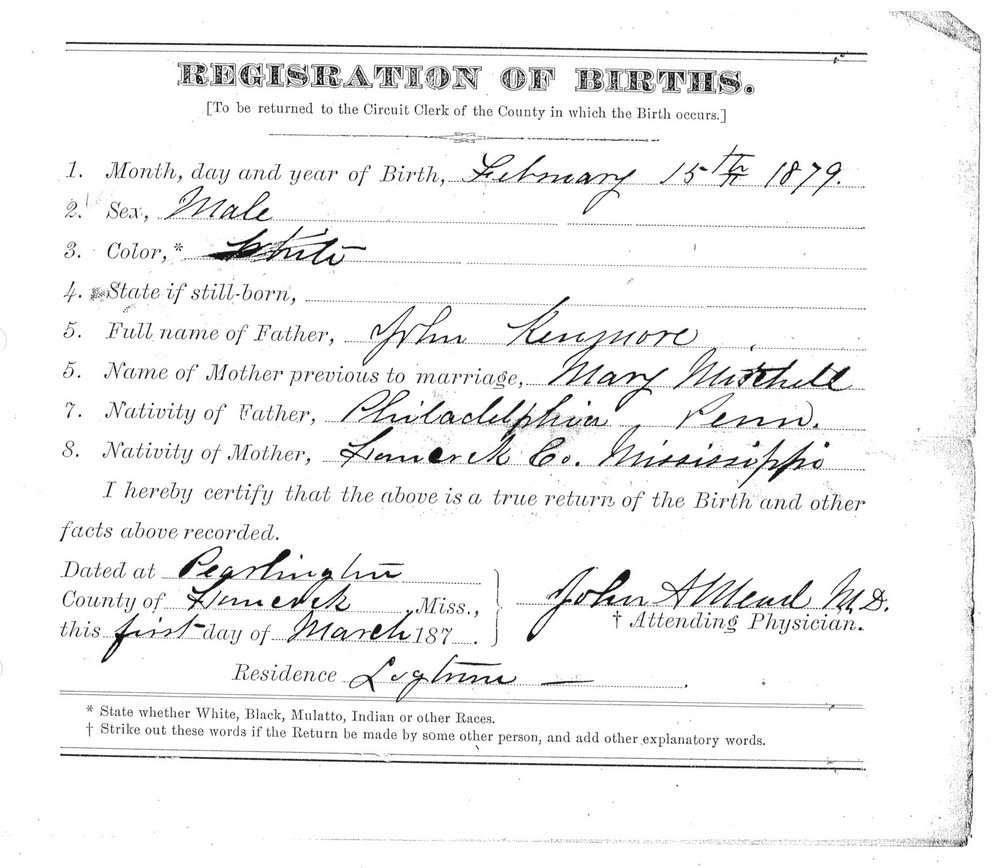 REGISRATION OF BIRTHS.
[To be returned to the Circuit Clerk of the County in which the Birth occurs.]
1. Month, day and year of Birth, February 15th 1879.
2. Sex, Male
3. Color,* White
4. State if still-born,
5. Full name of Father, John Kenmore
5. Name of Mother previous to marriage, Mary Mitchell
7. Nativity of Father, Philadelphia Penn.
8. Nativity of Mother, Hancock Co. Mississippi
I hereby certify that the above is a true return of the Birth and other
facts above recorded.
Dated at Pearlington
County of Hancock Miss.,
this first day of March 187 .
John A Mead M.D.
† Attending Physician.
Residence Logtown —
* State whether White, Black, Mulatto, Indian or other Races.
† Strike out these words if the Return be made by some other person, and add other explanatory words.